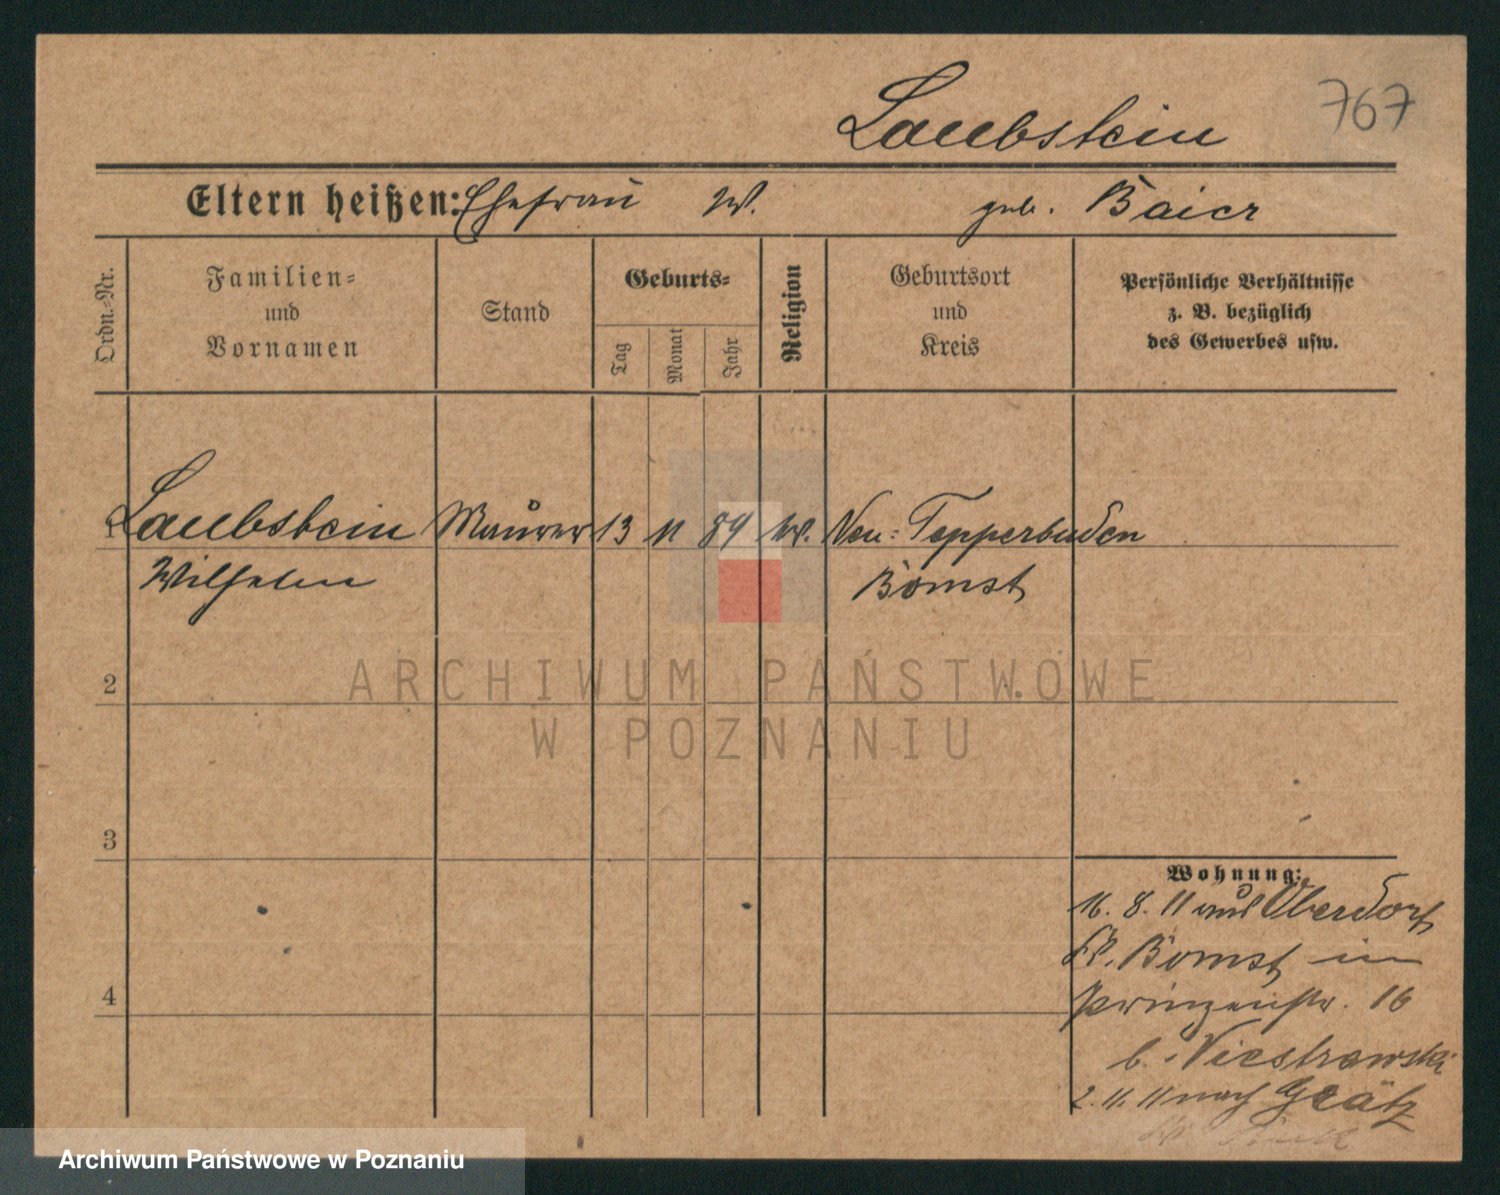 767
Laubstein
Eltern heißen: Ehefrau W. geb. Baier
Ordn.=Nr.
Familien=
und
Vornamen
Stand
Geburts=
Tag
Monat
Jahr
Religion
Geburtsort
und
Kreis
Persönliche Verhältnisse
z. B. bezüglich
des Gewerbes usw.
1 Laubstein Maurer 13 11 89 Neu= Tepperbuden
Wilhelm Bomst
ARCHIWUM PAŃSTWOWE
W POZNANIU
2
3
4
Wohnung:
16. 8. 11 aus Oberdorf
Kr. Bomst in
Prinzenstr. 16
b.
2. 11. 11 nach Grätz
Archiwum Państwowe w Poznaniu